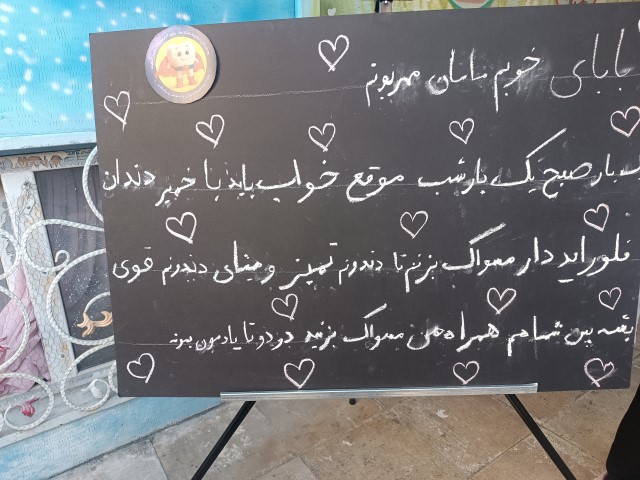 بابای خوبم مامان مهربونم
بار صبح یک بار شب موقع خواب باید با خمیر دندان
فلوراید دار مسواک بزنم تا دندونم تمیز و مینای دندونم قوی
بشه پس شما هم همراه من مسواک بزنید دو دو تا یادمون بمونه